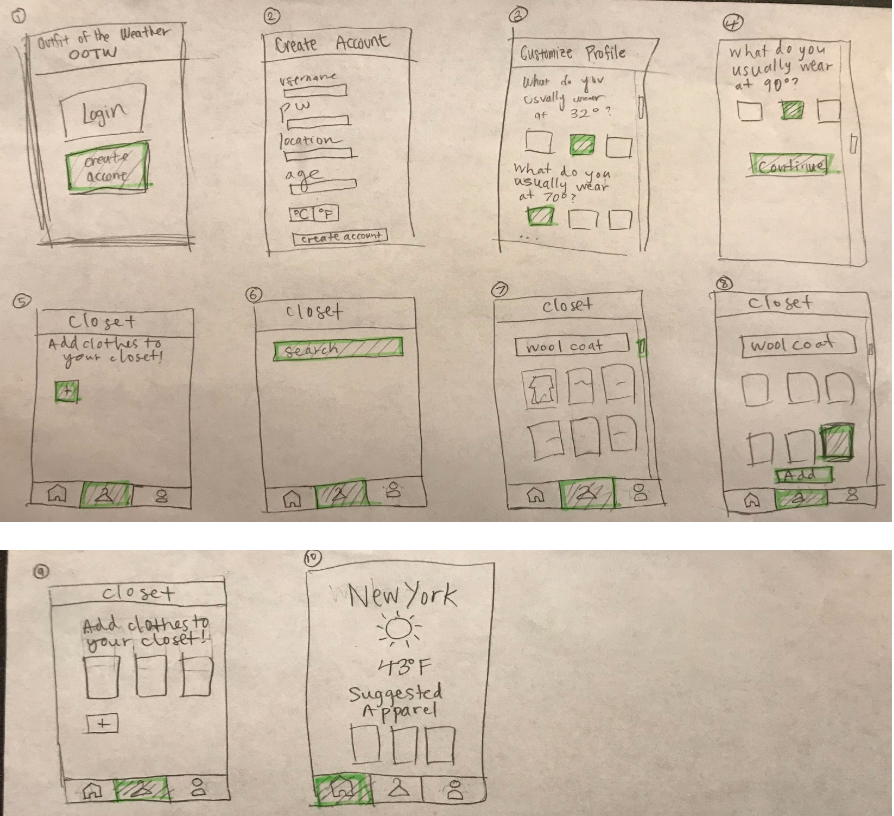 1
Outfit of the Weather
OOTW
Login
create
account
2
Create Account
username
pw
location
age
°C °F
create account
3
Customize Profile
What do you
usually wear
at 32°?
What do you
usually wear
at 70°?
...
4
What do you
usually wear
at 90°?
Continue
5
Closet
Add clothes to
your closet!
+
6
closet
search
7
closet
wool coat
8
closet
wool coat
Add
9
closet
Add clothes to
your closet!
+
10
New York
43°F
Suggested
Apparel